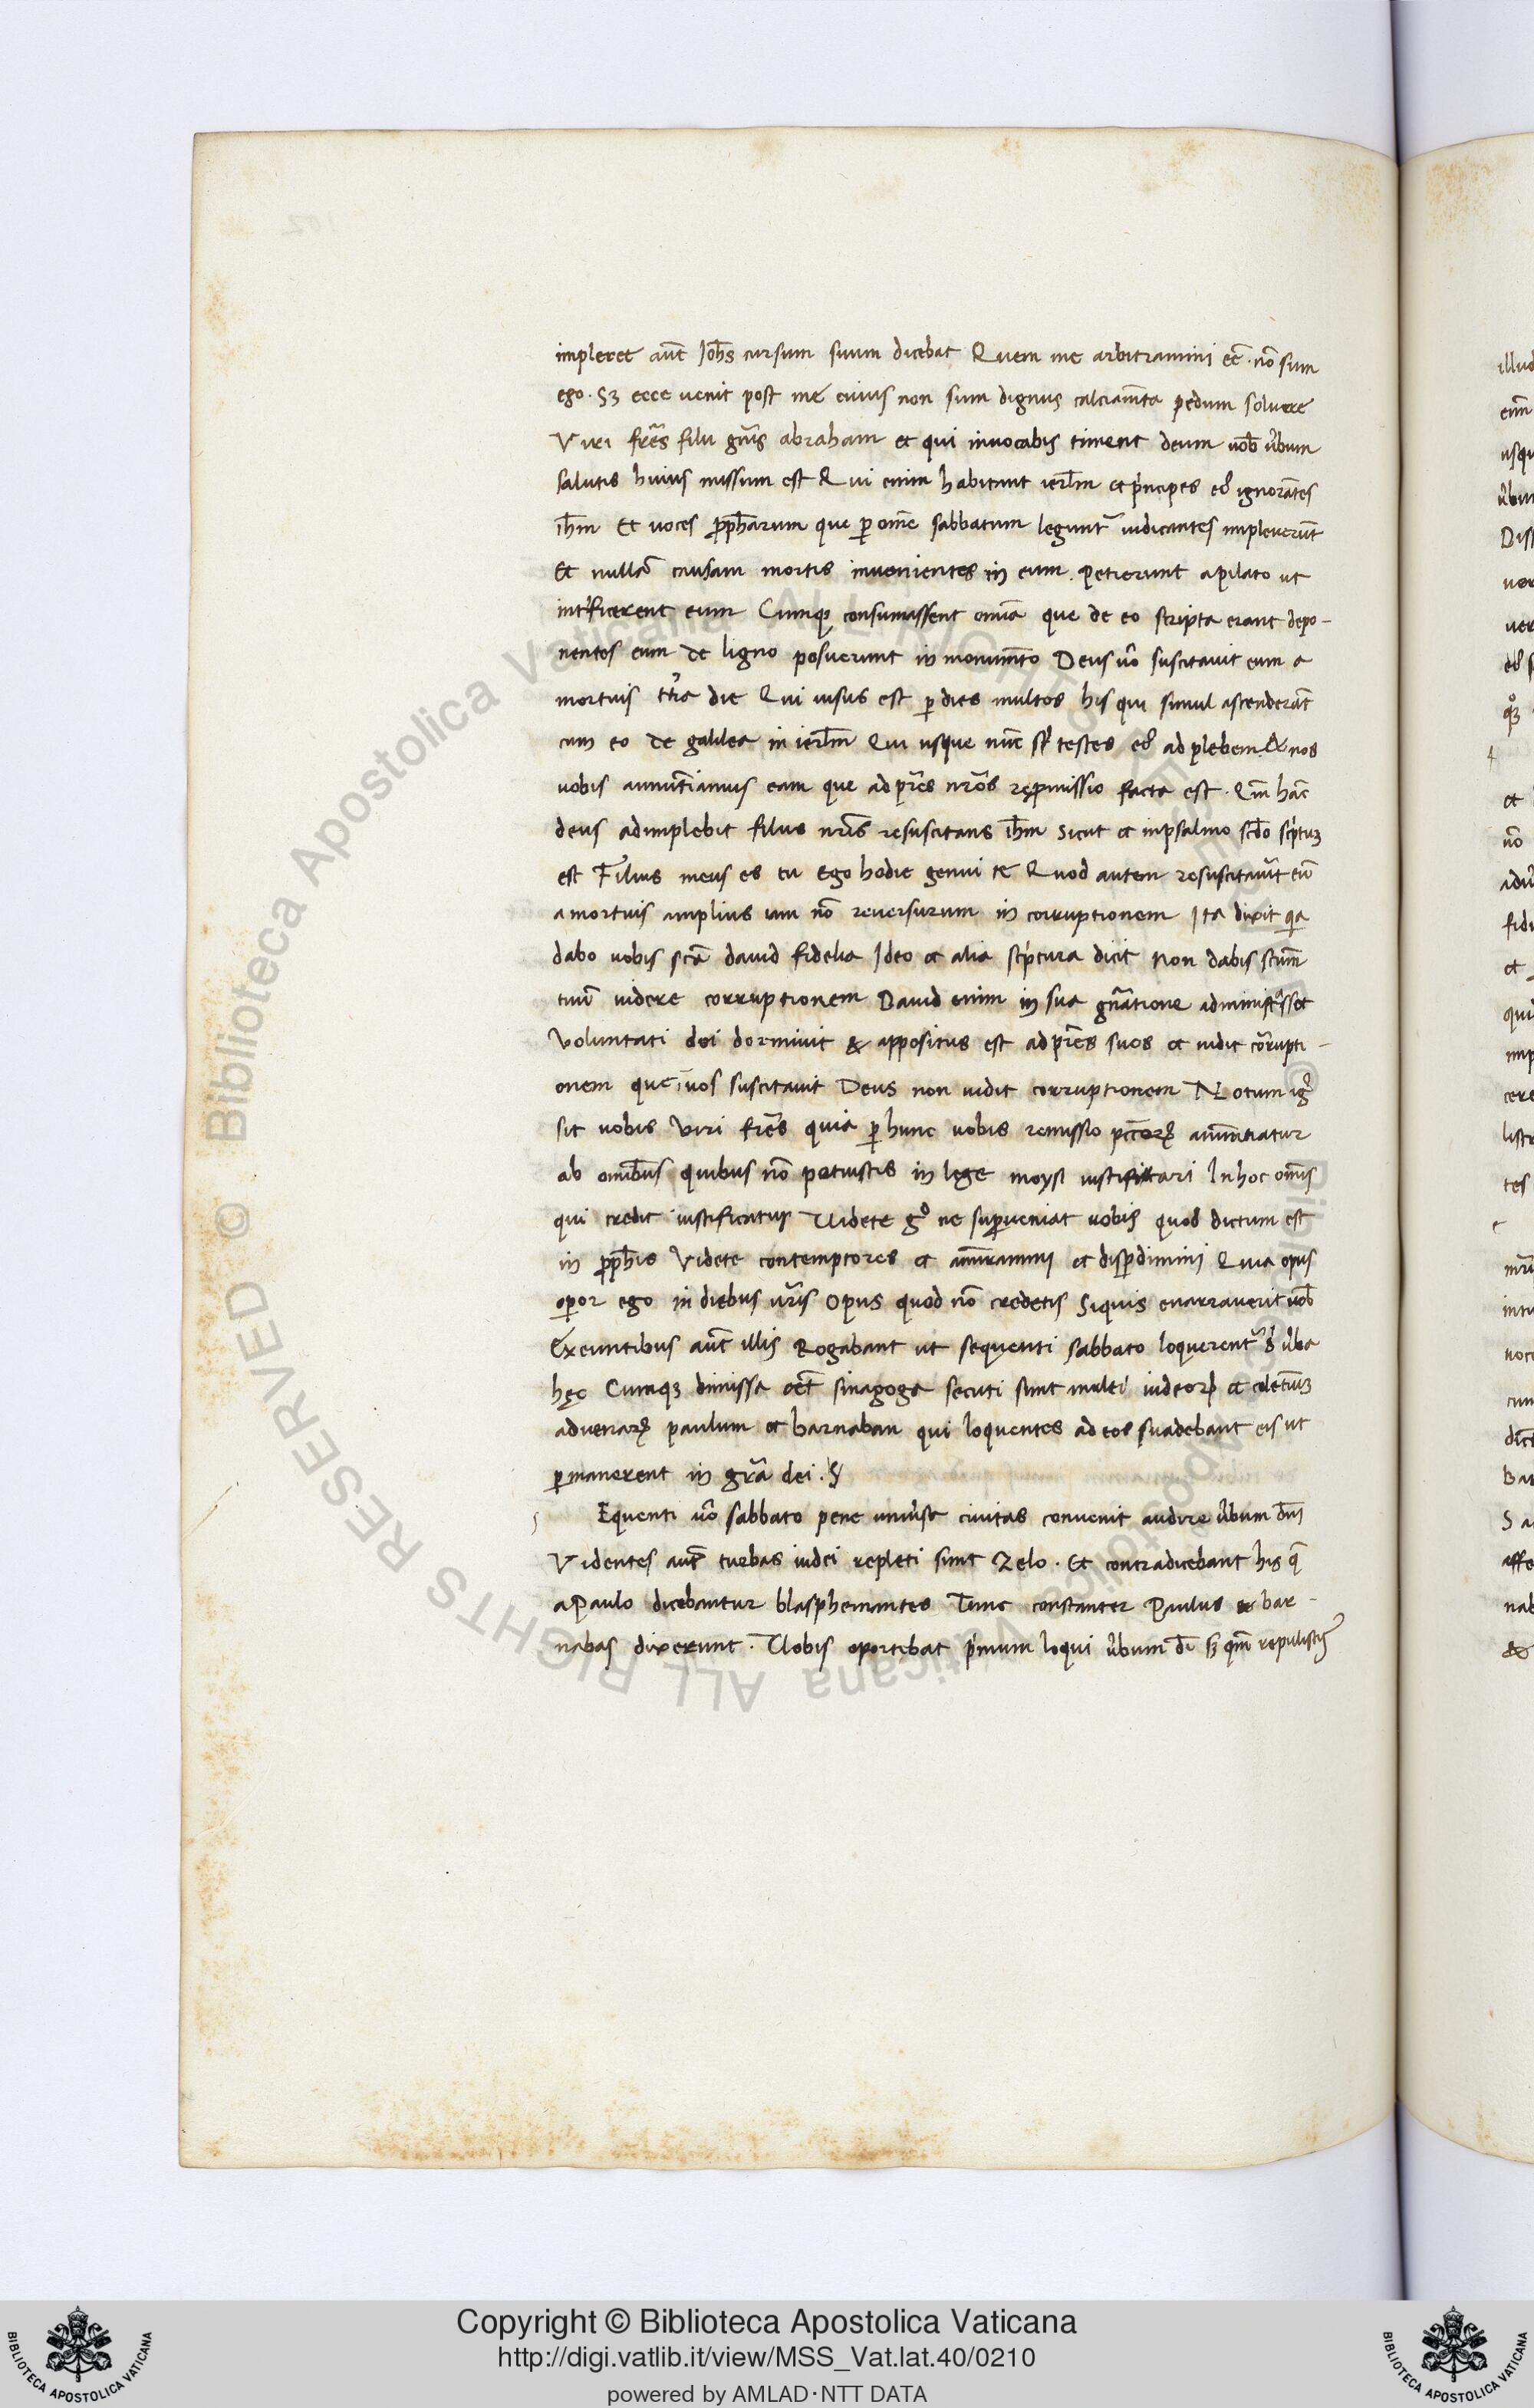 impleret aut̄ Joh̄s cursum suum dicebat Quem me arbitramini eē · nō sum
ego · Sꝫ ecce uenit post mē cuius non sum dignus calciam̄ta pedum soluere
Viri frēs filii gn̄is abraham et qui in uobis timent deum uob̄ u̓bum
salutis huius missum est Qui enim habitant ierl̄m et pͥncipes eꝰ ignorātes
ih̄m Et uoces ꝓph̄arum que ꝑ om̄e sabbatum legunt᷑ iudicantes impleuerūt
Et nullā causam mortis inuenientes in eum . petierunt a Pilato ut
int̓ficerent eum Cumqꝫ consumassent om̄ia que de eo scripta erant depo-
nentes eum de ligno posuerunt in monum̄to Deus u̓o suscitauit eum a
mortuis t̓tia die Qui uisus est ꝑ dies multos his qui simul ascenderāt
cum eo de galilea in ierl̄m Qui usque nūc st̄ testes eꝰ ad plebem . & nos
uobis annūtiamus eam que ad pr̄es nr̄os repromissio facta est . Qm̄ hāc
deus adimplebit filiis nr̄is resuscitans ih̄m sicut et in psalmo scd̄o scͥptuꝫ
est Filius meus es tu Ego hodie genui te Quod autem resuscitauit eū
a mortuis amplius iam nō reuersurum in corruptionem Ita dixit qͥa
dabo uobis scā dauid fidelia Ideo et alia scͥptura dicit Non dabis scūm
tuū uidere corruptionem Dauid enim in sua gn̄atione administrasset
Voluntati dei dormiuit & appositus est ad pr̄es suos et uidit corrupti-
onem que uos suscitauit Deus non uidit corruptionem Notum igͥ
sit uobis Viri frēs quia ꝑ hunc uobis remissio pcc̄orꝝ annūtiatur
ab omībus quibus nō potuistis in lege moysi iustificari In hoc om̄is
qui credit iustificatur Uidete gͦ ne suꝑueniat uobis quod dictum est
in ꝓph̄is Videte contemptores et amm̄iramini et disꝑdimini Quia opus
oꝑor ego in diebus ur̄is Opus quod nō credetis Siquis enarrauerit uob̄
Exeuntibus aut̄ illis Rogabant ut sequenti sabbato loquerent᷑ s̄ u̓ba
hęc Cumqꝫ dimissa eēt sinagoga secuti sunt multi iudeorꝝ et colētiuꝫ
aduenarꝝ paulum et barnaban qui loquentes ad eos suadebant eis ut
ꝑmanerent in gr̄a dei .
s Equenti u̓o sabbato pene uniu̓sa ciuitas conuenit audire u̓bum dn̄i
Videntes aut̄ turbas iudei repleti sunt Zelo . Et contradicebant his q̄
a Paulo dicebantur blasphemantes Tunc constanter Paulus & bar-
nabas dixerunt . Uobis oportebat pͥmum loqui u̓bum dī sꝫ qm̄ repulistis
Copyright © Biblioteca Apostolica Vaticana
http://digi.vatlib.it/view/MSS_Vat.lat.40/0210
powered by AMLAD·NTT DATA